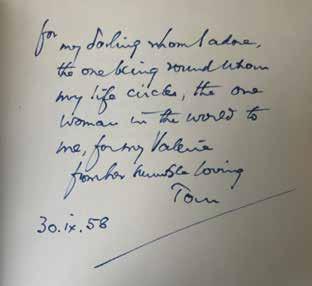 for
my darling whom I adore,
the one being round whom
my life circles, the one
woman in the world to
me, for my Valerie
from her humble loving
Tom
30.ix.58